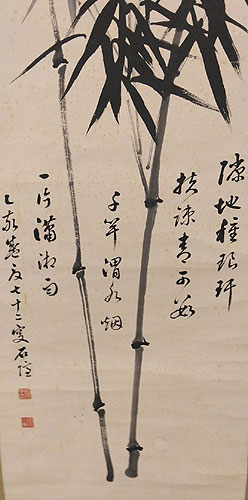 隙地種琅玕
扶疎青可数
千竿渭水烟
一片瀟湘雨
乙亥
七十二叟石